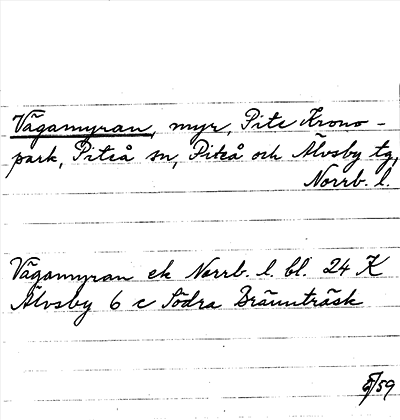 Vägamyran, myr, Pite Krono-
park, Piteå sn, Piteå och Älvsby tg,
Norrb. l.
Vägamyran ek Norrb. l. bl. 24 K
Älvsby 6 c Södra Brännträsk
/59